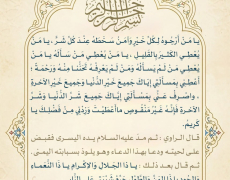 يا مَنْ أَرْجُوهُ لِكُلِّ خَيْرٍ وَآمَنُ سَخَطَهُ عِنْدَ كُلِّ شَرٍّ، يا مَنْ
يُعْطِي الكَثِيرَ بِالقَلِيلِ، يا مَنْ يُعْطِي مَنْ سَأَلَهُ يا مَنْ
يُعْطِي مَنْ لَمْ يَسْأَلْهُ وَمَنْ لَمْ يَعْرِفْهُ تَحَنُّناً مِنْهُ وَرَحْمَةً
أَعْطِنِي بِمَسْأَلَتِي إِيَّاكَ جَمِيعَ خَيْرِ الدُّنْيا وَجَمِيعَ خَيْرِ الآخِرَةِ
وَاصْرِفْ عَنِّي بِمَسْأَلَتِي إِيَّاكَ جَمِيعَ شَرِّ الدُّنْيا وَشَرِّ
الآخِرَةِ فَإِنَّهُ غَيْرُ مَنْقُوصٍ ما أَعْطَيْتَ وَزِدْنِي مِنْ فَضْلِكَ يا
كَرِيمُ.
قال الراوي: ثم مد عليه السلام يده اليسرى فقبض
على لحيته ودعا بهذا الدعاء وهو يلوذ بسبابته اليمنى.
ثم قال بعد ذلك: يا ذا الجَلالِ وَالإِكْرامِ يا ذا النَّعْماءِ